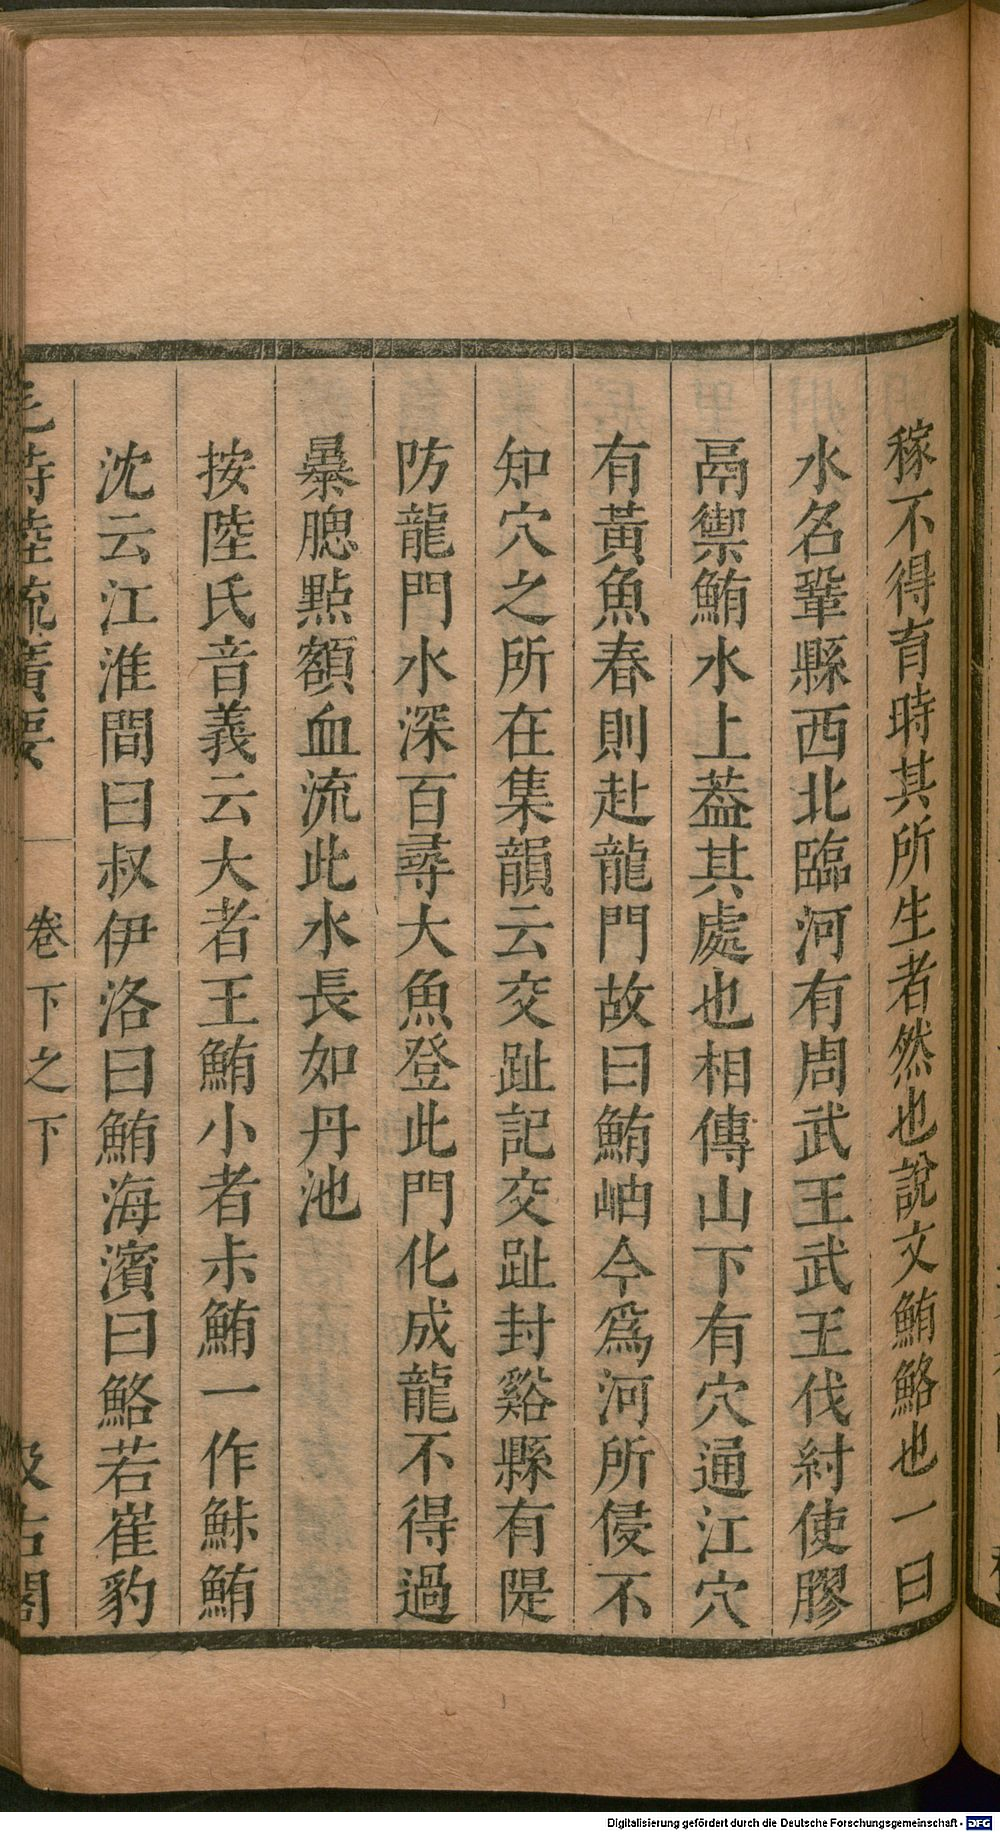 稼不得育時其所生者然也說文鮪鮥也一曰
水名鞏縣西北臨河有周武王武王伐紂使膠
鬲禦鮪水上葢其處也相傳山下有穴通江穴
有黃魚春則赴龍門故曰鮪岫今爲河所侵不
知穴之所在集韻云交趾記交趾封谿縣有隄
防龍門水深百尋大魚登此門化成龍不得過
暴腮點額血流此水長如丹池
按陸氏音義云大者王鮪小者尗鮪一作鮛鮪
沈云江淮間曰叔伊洛曰鮪海濱曰鮥若崔豹
毛詩陸疏廣要
卷下之下
汲古閣
Digitalisierung gefördert durch die Deutsche Forschungsgemeinschaft - DFG